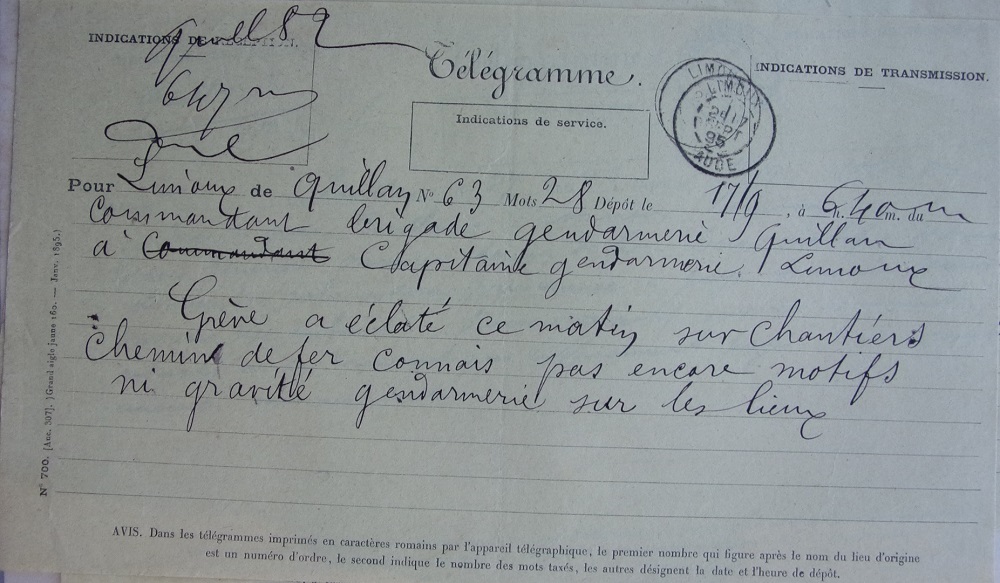 INDICATIONS DE RÉCEPTION.
Télégramme.
INDICATIONS DE TRANSMISSION.
Indications de service.
LIMOUX
AUDE
Pour Limoux de Quillan N° 63 Mots 28 Dépôt le 17/9, à 6 h. 40 m. du m
Commandant brigade gendarmerie Quillan
à Commandant Capitaine gendarmerie Limoux
Grève a éclaté ce matin sur chantiers
chemin de fer connais pas encore motifs
ni gravité gendarmerie sur les lieux
N° 700. [Anc. 307]. (Grand aigle jaune 160. — Janv. 1895.)
AVIS. Dans les télégrammes imprimés en caractères romains par l'appareil télégraphique, le premier nombre qui figure après le nom du lieu d'origine
est un numéro d'ordre, le second indique le nombre des mots taxés, les autres désignent la date et l'heure de dépôt.